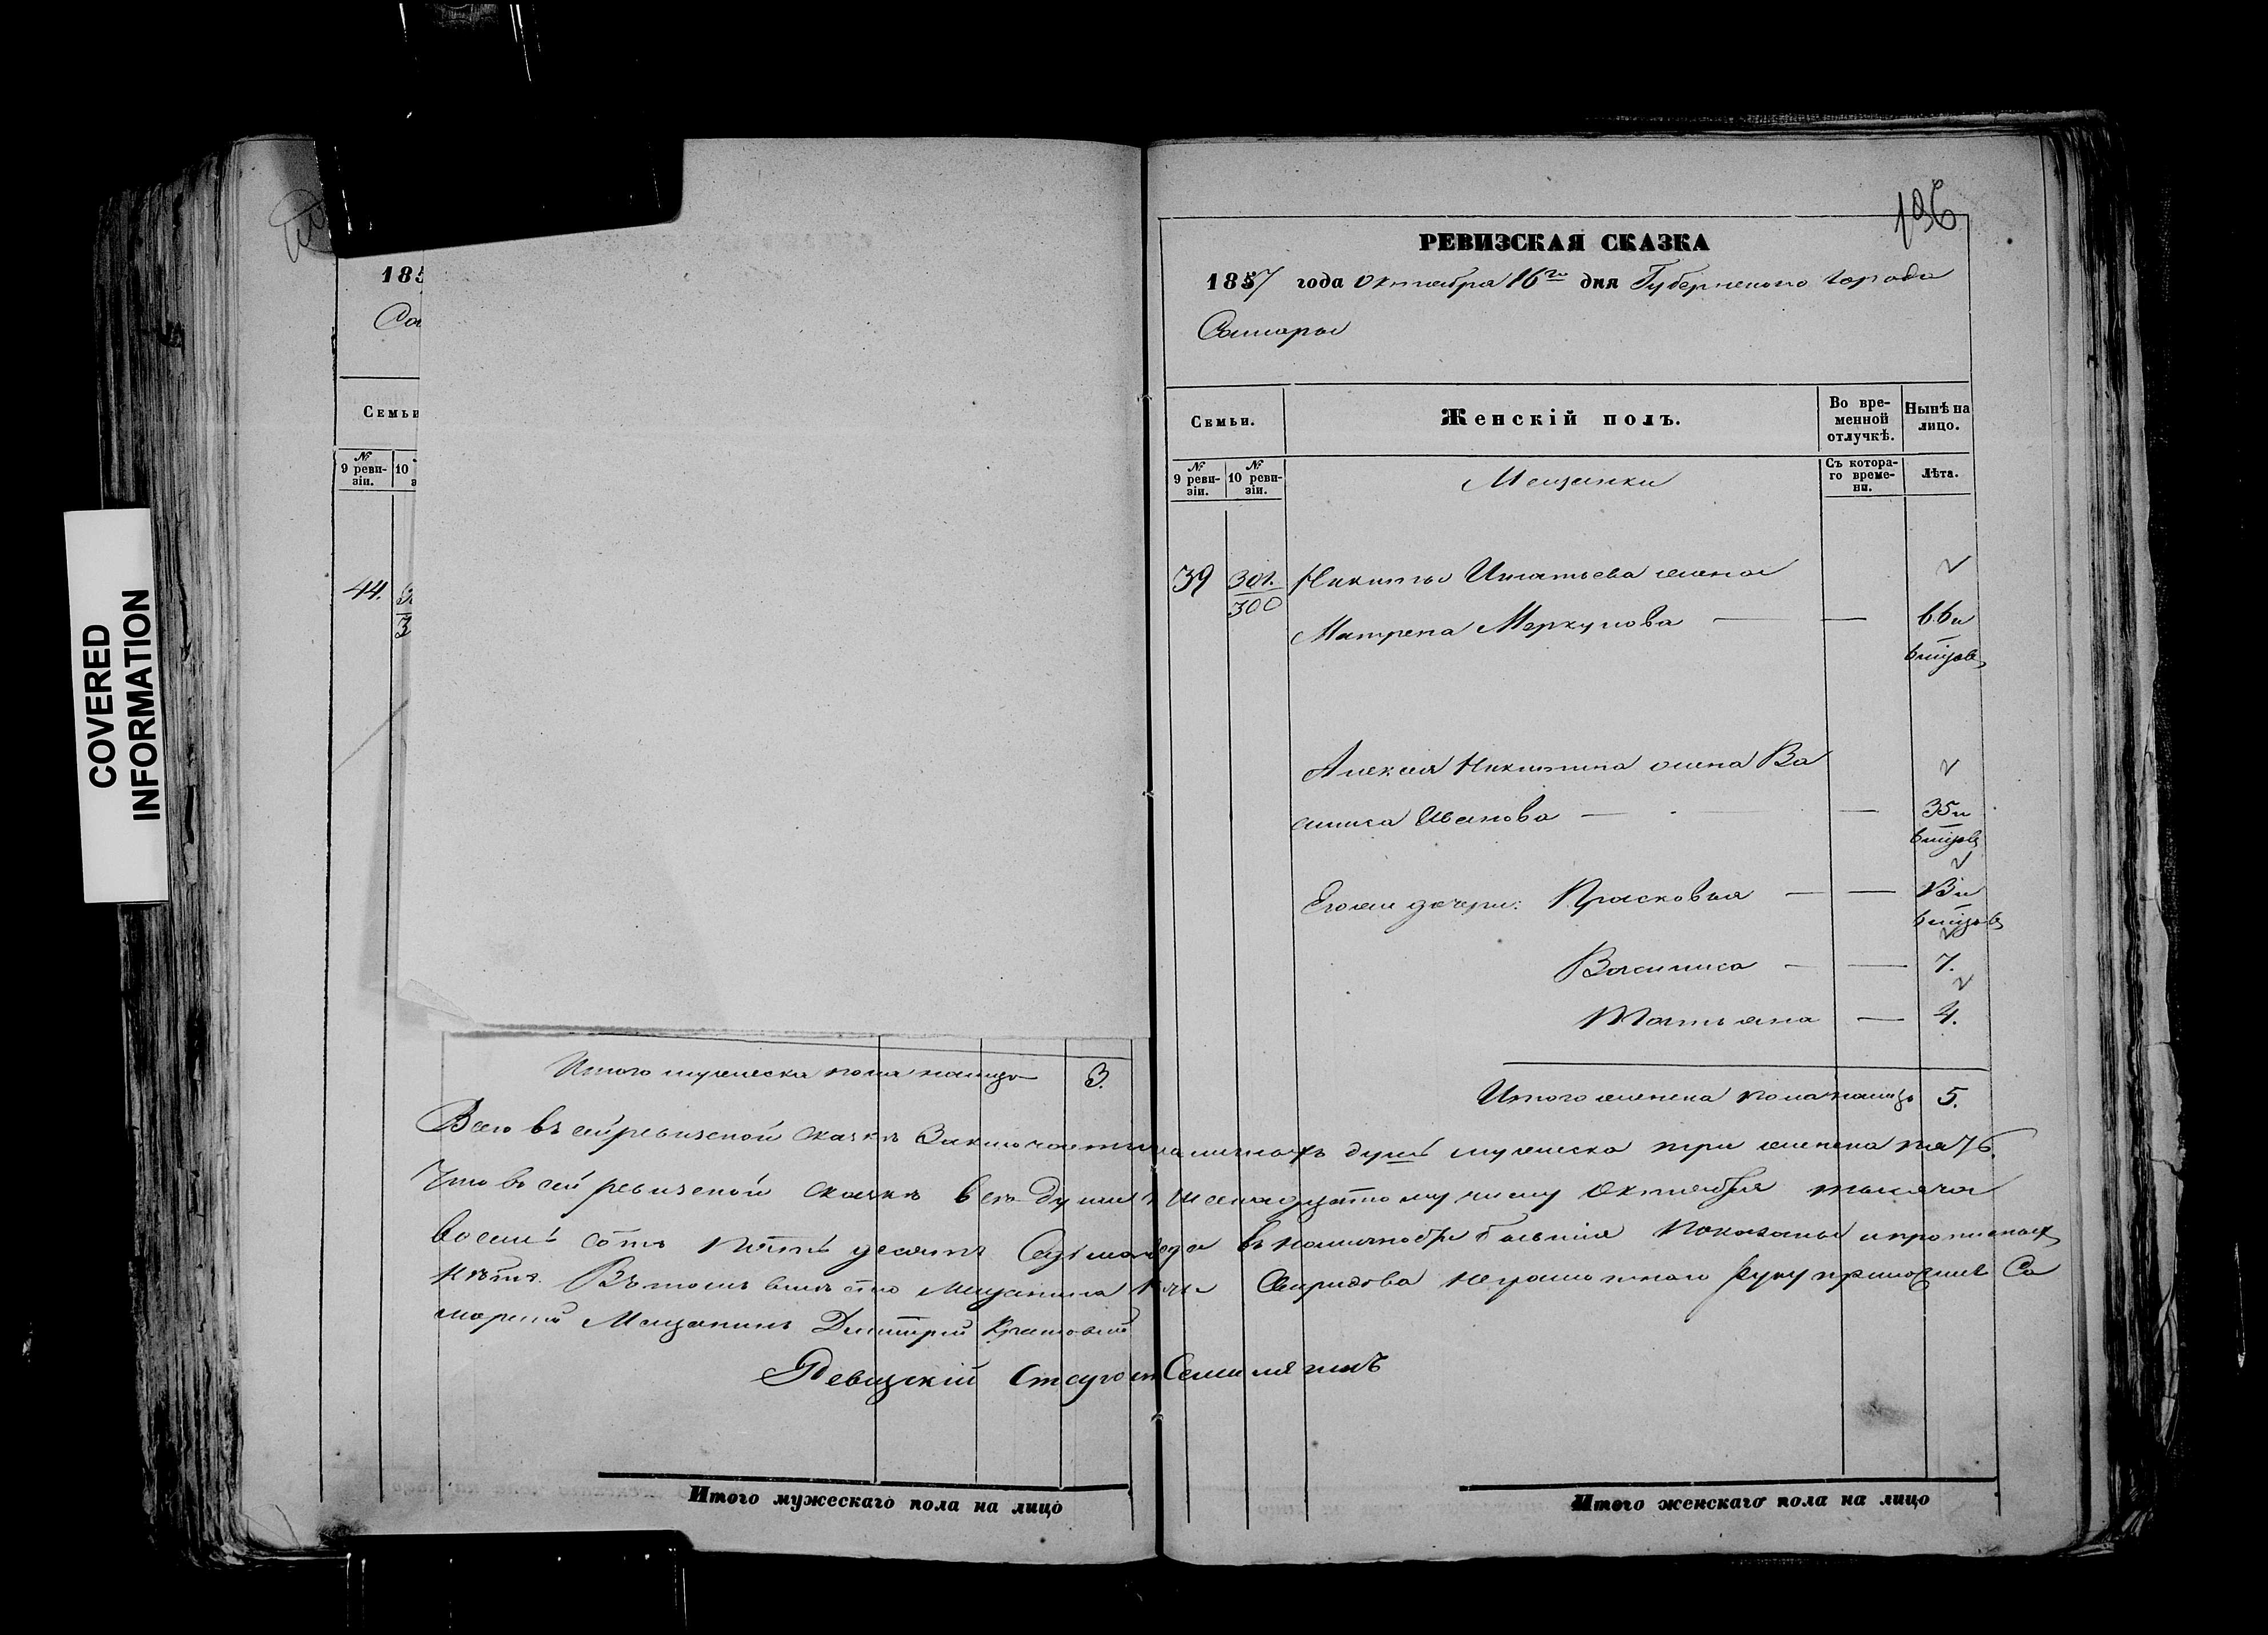 COVERED
INFORMATION
185
Са
Семьи
№
9 реви-
зіи.
10
44.
3
Итого мужеска пола налицо 3.
136
РЕВИЗСКАЯ СКАЗКА
1857 года Октября 16го дня Губернскаго города
Самары
Семьи.
Женскій полъ.
Во вре-
менной
отлучкѣ.
Нынѣ на
лицо.
№
9 реви-
зіи.
№
10 реви-
зіи.
Мещанки
Съ котора-
го време-
ни.
Лѣта.
39 301. Никиты Игнатьева жена
300
Матрена Меркулова — — 66 и
Алексея Никитина жена Ва
силиса Иванова — — 35 и
Его же дочери: Прасковья — — 13 и
Василиса — — 7.
Татьяна — 4.
Итого женска пола налицо 5.
Всего въ сей ревизской сказкѣ заключается наличныхъ душъ мужеска три женска пять.
Что въ сей ревизской сказкѣ все души къ шестнадцатому числу Октября тысяча
восемь сотъ пять десятъ седьмаго года въ наличности бывшія показаны и прописныхъ
нѣтъ. Въ томъ вместо мещанина Свиридова неграмотнаго руку приложилъ Са
марскій Мещанинъ Дмитрій
Ревизскій Староста
Итого мужескаго пола на лицо
Итого женскаго пола на лицо